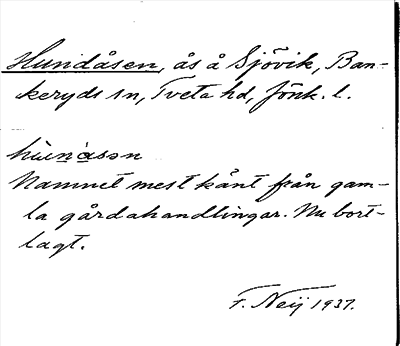 Hundåsen, ås å Sjövik, Ban-
keryds sn, Tveta hd, Jönk. l.
hùnàsən
Namnet mest känt från gam-
la gårdahandlingar. Nu bort-
lagt.
F. Neij 1937.